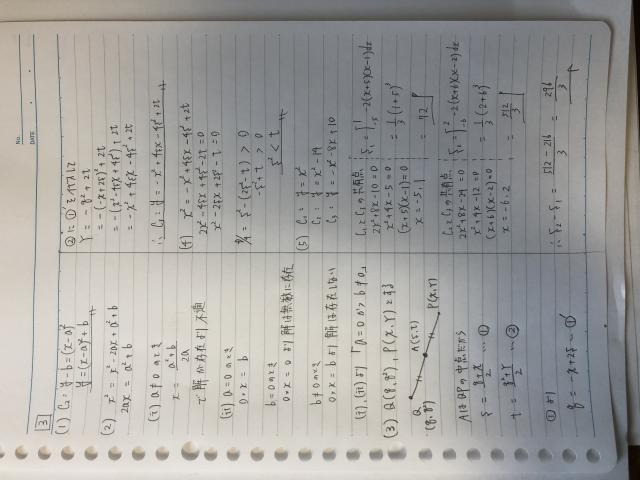 No.
DATE
[3]
(1) C₂: y-b=(x-a)²
y=(x-a)²+b
(2) x²=x²-2ax+a²+b
2ax=a²+b
(i) a≠0のとき
x=(a²+b)/2a
で解が存在より不適
(ii) a=0のとき
0・x=b
b=0のとき
0・x=0より解は無数に存在
b≠0のとき
0・x=bより解は存在しない
(i),(ii)より「a=0かつb≠0」
(3) Q(q,q²), P(X,Y)とする
Q
(q,q²)
A(s,t)
P(X,Y)
AはQPの中点だから
s=(q+X)/2 … ①
t=(q²+Y)/2 … ②
①より
q=-X+2s … ①'
②に①'を代入して
Y=-q²+2t
=-(-X+2s)²+2t
=-(X²-4sX+4s²)+2t
=-X²+4sX-4s²+2t
∴ C₃: y=-x²+4sx-4s²+2t
(4) x²=-x²+4sx-4s²+2t
2x²-4sx+4s²-2t=0
x²-2sx+2s²-t=0
D/4=s²-(2s²-t)>0
-s²+t>0
s²<t
(5) C₁: y=x²
C₂: y=x²-14
C₃: y=-x²-8x+10
2x²+8x-10=0
x²+4x-5=0
(x+5)(x-1)=0
x=-5,1
S₁=∫₋₅¹-2(x+5)(x-1)dx
=1/3(1+5)³
=72
2x²+8x-24=0
x²+4x-12=0
(x+6)(x-2)=0
x=-6,2
S₂=∫₋₆²-2(x+6)(x-2)dx
=1/3(2+6)³
=512/3
∴ S₂-S₁=(512-216)/3=296/3